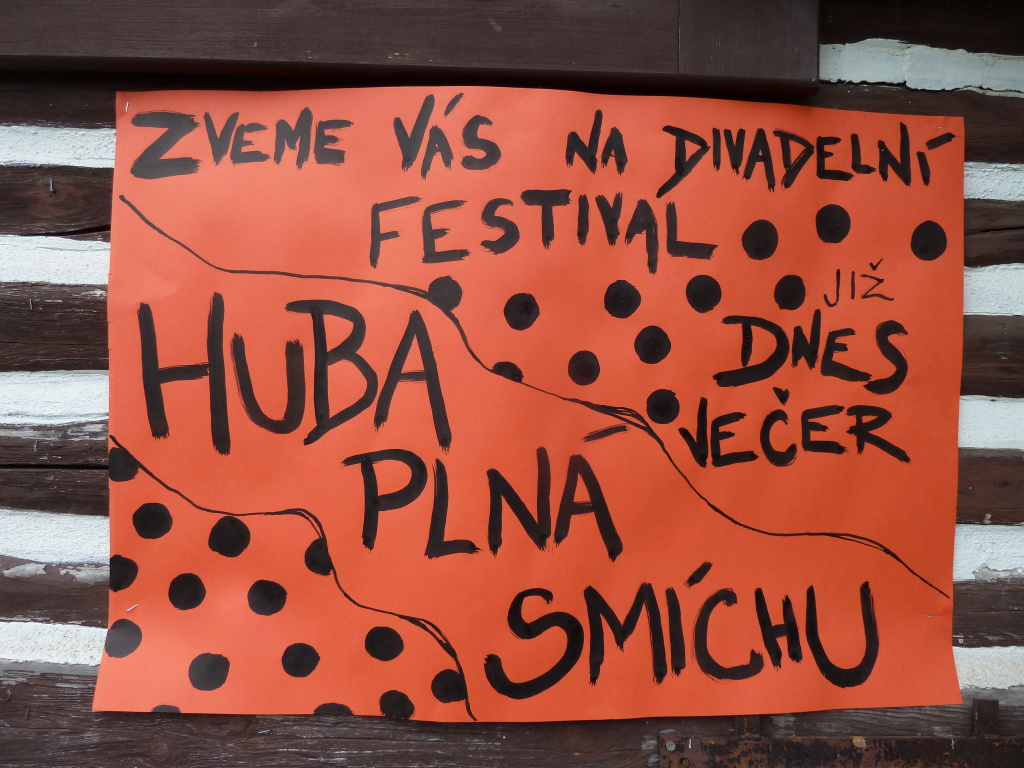 ZVEME VÁS NA DIVADELNÍ
FESTIVAL
JIŽ
DNES
VEČER
HUBA
PLNÁ
SMÍCHU